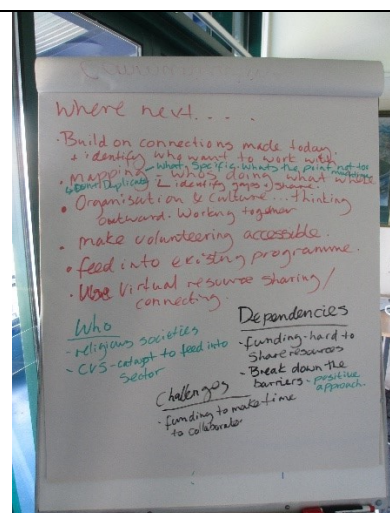 Where next.....
· Build on connections made today.
+ identify who want to work with
· mapping - what. specific. what's the point, not to
don't duplicate - who's doing what where
- identify gaps + share.
· Organisation & Culture... thinking
outward. Working together
· make volunteering accessible.
· feed into existing programme.
· Use Virtual resource sharing/
connecting.
Who
- religious societies
- CVS - adapt to feed into
sector
Dependencies
· funding - hard to
share resources
- Break down the
barriers - positive
approach.
Challenges
· funding to make time
to collaborate